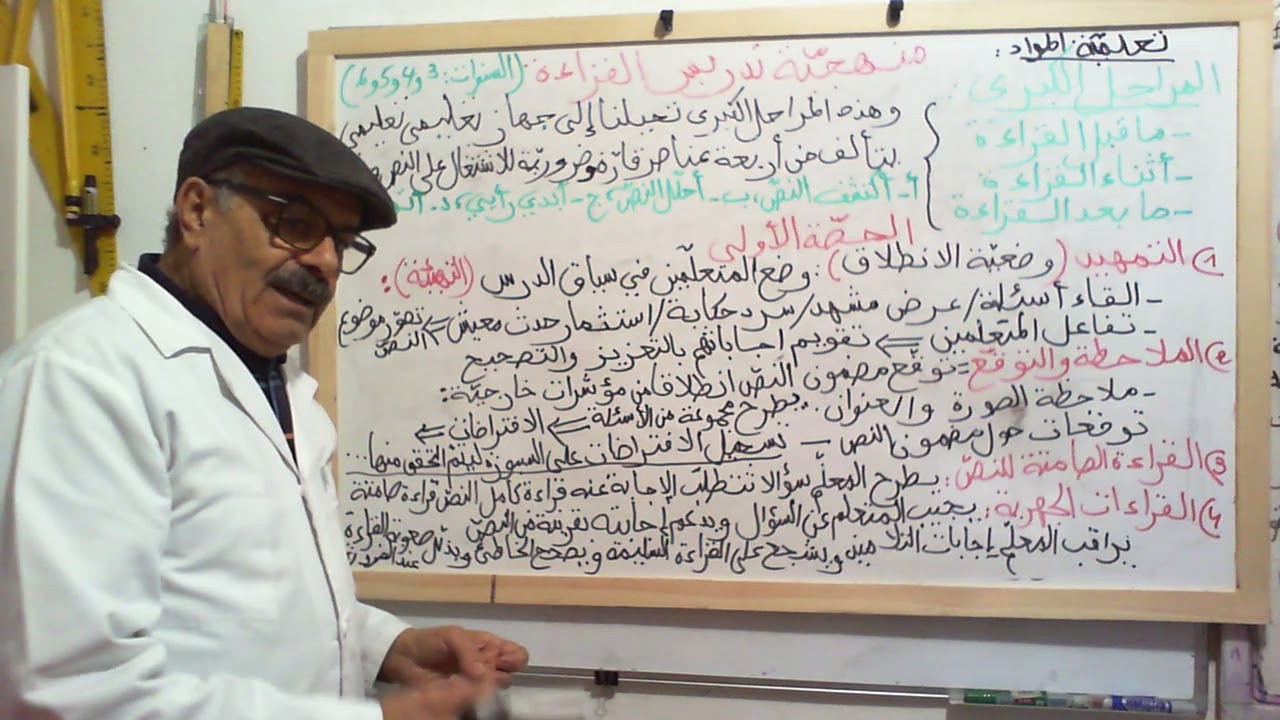 تعلميّة المواد:
منهجيّة تدريس القراءة (السنوات: 3 و4 و5 و6)
المراحل الكبرى:
- ما قبل القراءة
- أثناء القراءة
- ما بعد القراءة
وهذه المراحل الكبرى تحيلنا إلى جهاز تعليمي تعلمي
يتألف من أربعة عناصر قارّة وضروريّة للاشتغال على النص
أ- أكتشف النصّ، ب- أحلّل النصّ، ج- أبدي رأيي، د-
الحصّة الأولى
1) التمهيد (وضعيّة الانطلاق): وضع المتعلّمين في سياق الدرس (التهيئة):
- القاء أسئلة/ عرض مشهد/ سرد حكاية/ استثمار حدث معيش ⇐ تصوّر موضوع النصّ
- تفاعل المتعلمين ⇐ تقويم اجاباتهم بالتعزيز والتصحيح
2) الملاحظة والتوقّع: توقّع مضمون النصّ انطلاقا من مؤشرات خارجيّة:
- ملاحظة الصورة والعنوان.. يطرح مجموعة من الأسئلة ⇐ الافتراضات ⇐
توقعات حول مضمون النص – تسجيل الافتراضات على السبورة ليتم التحقق منها...
3) القراءة الصامتة للنصّ: يطرح المعلّم سؤالا تتطلّب الإجابة عنه قراءة كامل النص قراءة صامتة
4) القراءات الجهرية: يجيب المتعلم عن السؤال ويدعم إجابته بقرينة من النصّ
يراقب المعلّم إجابات التلاميذ ويشجع على القراءة السليمة ويصحح الخاطئ ويذلّل صعوبة القراءة عند الضرورة